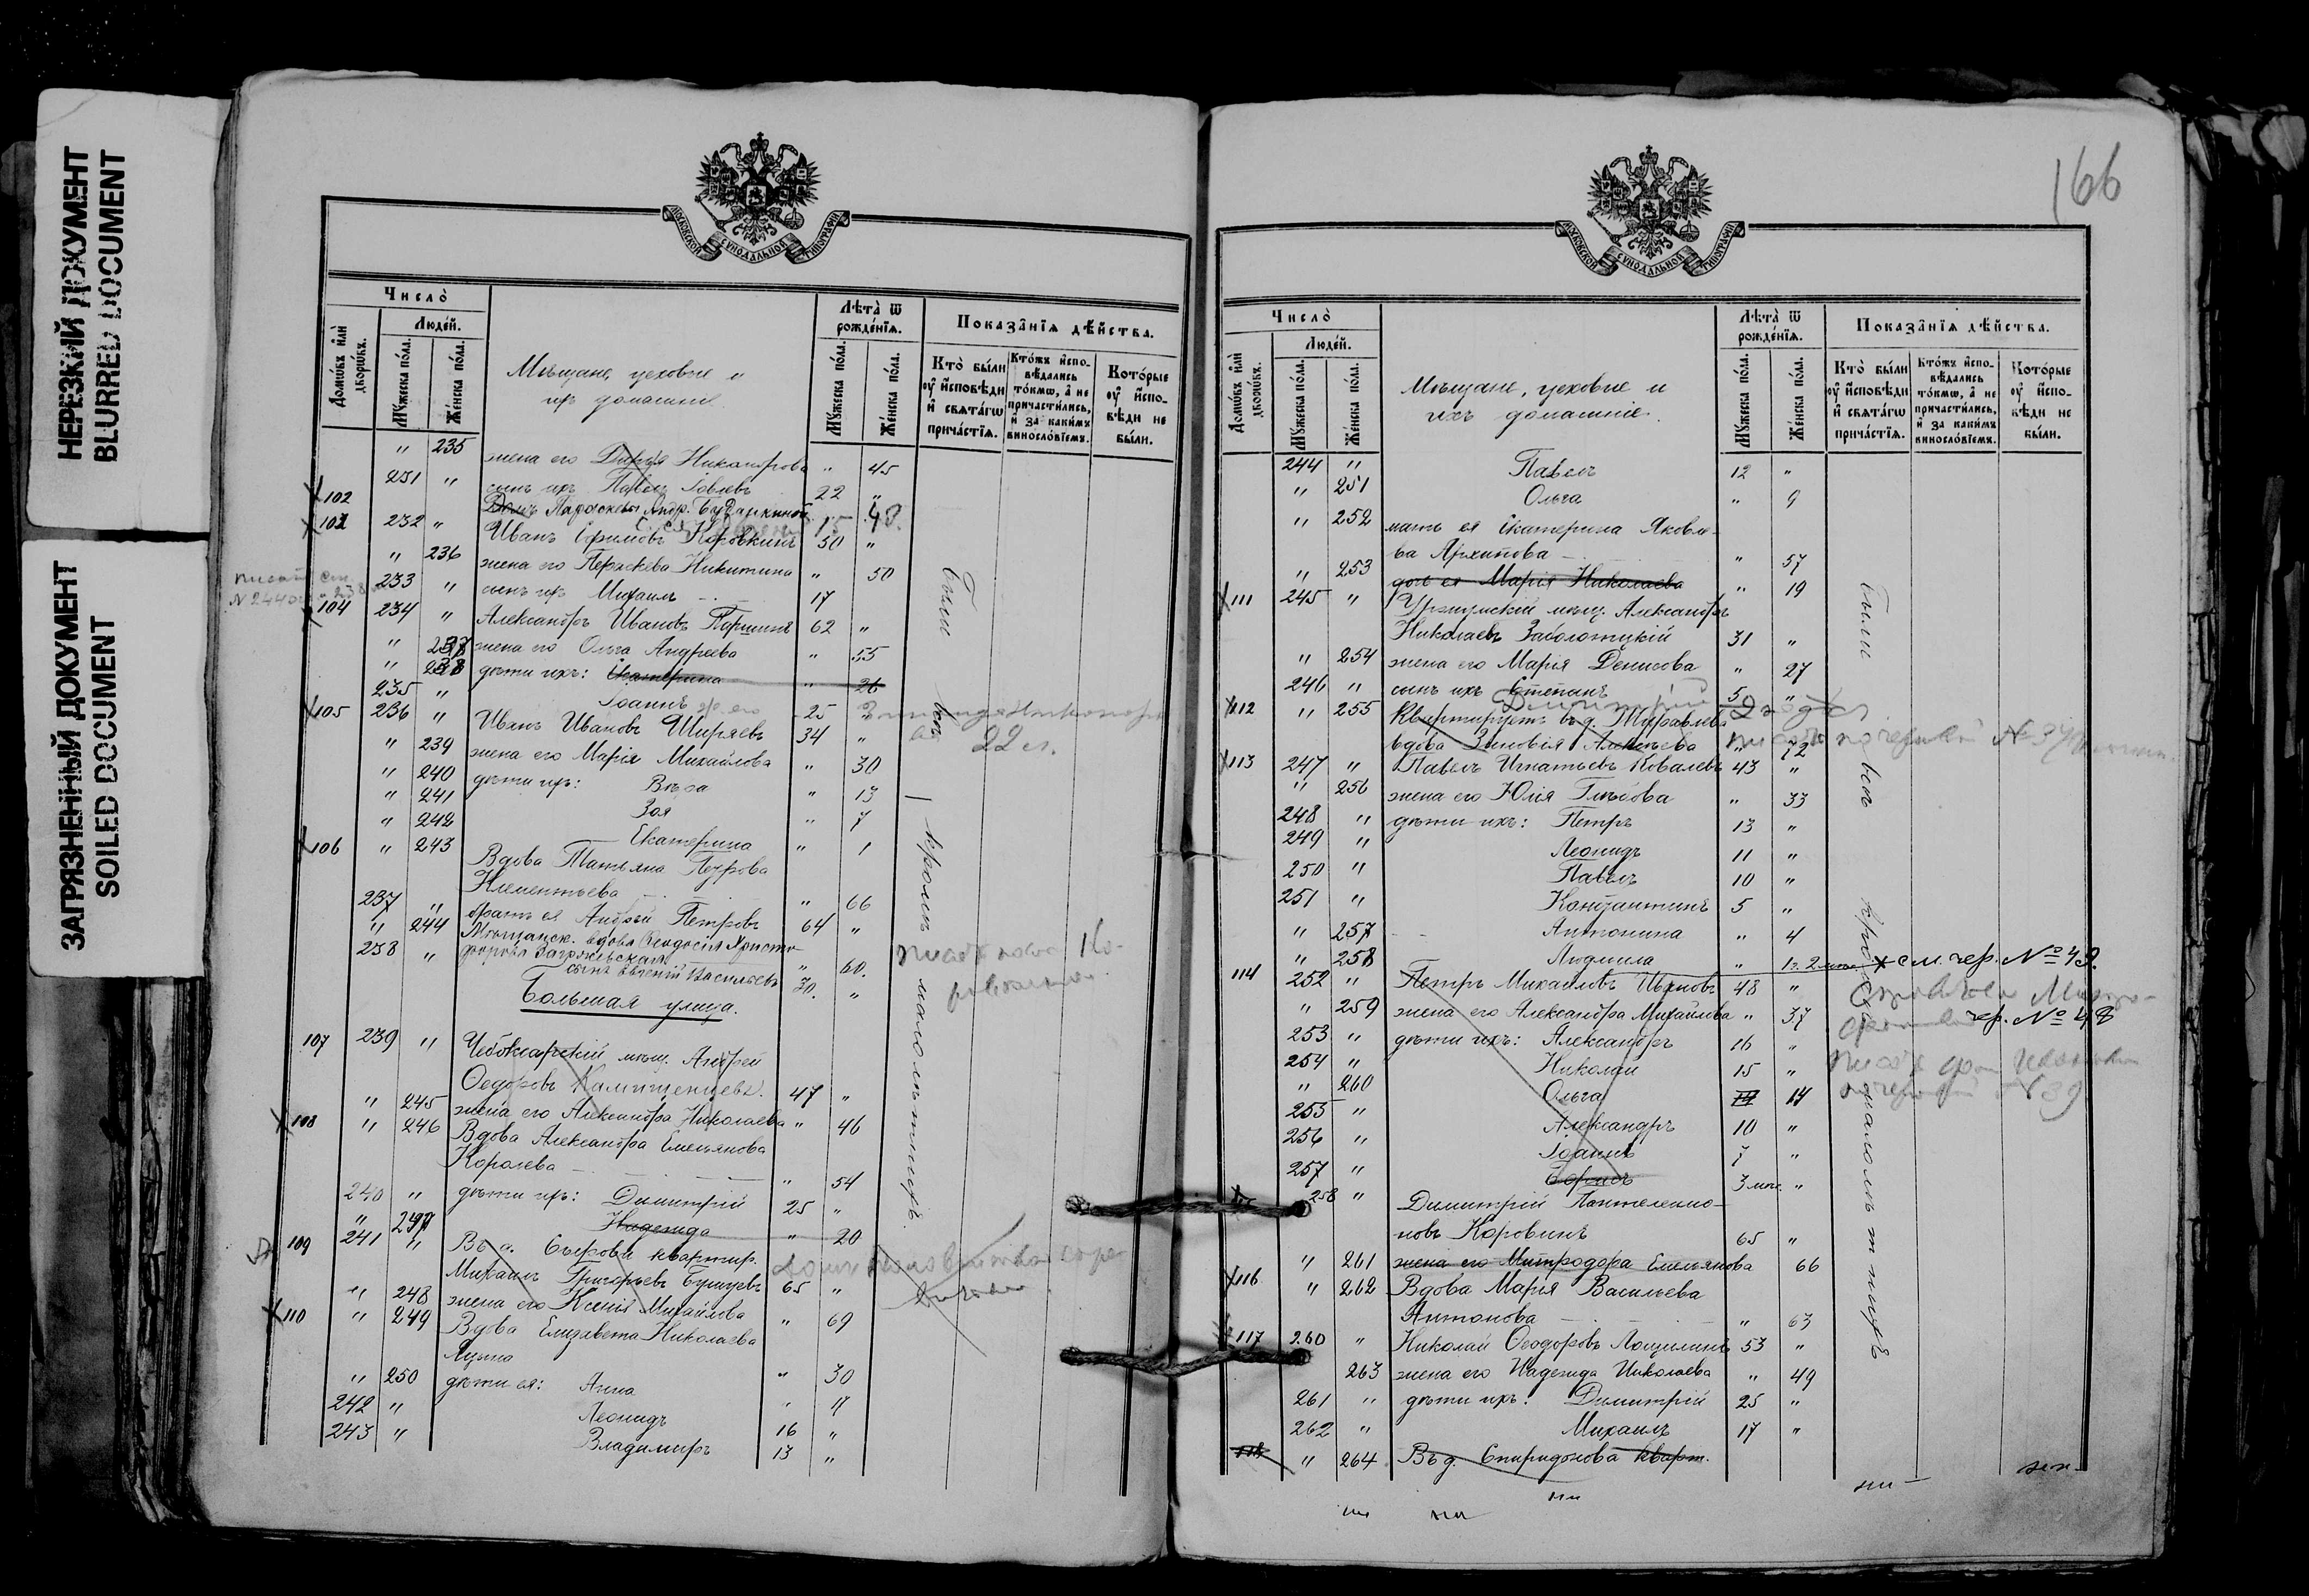 НЕРЕЗКИЙ ДОКУМЕНТ
BLURRED DOCUMENT
ЗАГРЯЗНЕННЫЙ ДОКУМЕНТ
SOILED DOCUMENT
МОСКОВСКОЙ СѴНОДАЛЬНОЙ ТИПОГРАФІИ
Число̀
Людей.
Домѡвъ и҆лѝ дворѡвъ.
Мꙋжеска по́ла.
Же́нска по́ла.
Мѣщане, цеховые и
ихъ домашніе.
Лѣта̀ ѿ рожде́нїѧ.
Мꙋжеска по́ла.
Же́нска по́ла.
Показа̑нїѧ дѣ́йства.
Кто̀ бы́ли ᲂу҆ и҆сповѣди и҆ свѧта́гѡ прича́стїѧ.
Кто́жъ и҆спо­вѣдались то́кмѡ, а҆ не причасти́лись, и҆ за каки́мъ виносло́вїемъ.
Кото́рые ᲂу҆ и҆спо­вѣди не бы́ли.
" 235 жена его Дарія Никанорова " 45
231 " сынъ ихъ Павелъ Іовлевъ 22 "
102 Домъ Параскевы
232 " Иванъ Ефимовъ Коровкинъ 50 "
" 236 жена его Параскева Никитина " 50
233 " сынъ ихъ Михаилъ 17
104 234 " Александръ Ивановъ Паршинъ 62 "
" 237 жена его Ольга Андреева " 55
" 238 дѣти ихъ: Екатерина " 26
235 " Іоаннъ 25 "
105 236 " Иванъ Ивановъ Ширяевъ 34 "
22 л.
" 239 жена его Марія Михайлова " 30
" 240 дѣти ихъ: Вѣра " 13
" 241 Зоя " 7
" 242 Екатерина " 1
106 " 243 Вдова Татьяна Петрова
Клементьева " 66
237 " братъ ея Андрей Петровъ 64 "
" 244 Мѣщанск. вдова Ѳеодосія Христо-
форова " 60.
238 " сынъ Евгеній Васильевъ 30. "
Большая улица.
107 239 " Чебоксарскій мѣщ. Андрей
Ѳедоровъ 47 "
" 245 жена его Александра Николаева " 46
108 " 246 Вдова Александра Емельянова
Королева " 54
240 " дѣти ихъ: Димитрій 25 "
" 247 Надежда " 20
109 241 " Въ д. Сырова квартир.
Михаилъ Григорьевъ 65 "
" 248 жена его Ксенія Михайлова " 69
110 " 249 Вдова Елизавета Николаева
" 30
" 250 дѣти ея: Анна "
242 " Леонидъ 16 "
243 " Владимиръ 13 "
Были всѣ
кромѣ малолѣтнихъ.
166
МОСКОВСКОЙ СѴНОДАЛЬНОЙ ТИПОГРАФІИ
Число̀
Людей.
Домѡвъ и҆лѝ дворѡвъ.
Мꙋжеска по́ла.
Же́нска по́ла.
Мѣщане, цеховые и
ихъ домашніе.
Лѣта̀ ѿ рожде́нїѧ.
Мꙋжеска по́ла.
Же́нска по́ла.
Показа̑нїѧ дѣ́йства.
Кто̀ бы́ли ᲂу҆ и҆сповѣди и҆ свѧта́гѡ прича́стїѧ.
Кто́жъ и҆спо­вѣдались то́кмѡ, а҆ не причасти́лись, и҆ за каки́мъ виносло́вїемъ.
Кото́рые ᲂу҆ и҆спо­вѣди не бы́ли.
244 " Павелъ 12 "
" 251 Ольга " 9
" 252 мать ея Екатерина Яковле-
ва Архипова " 57
" 253 дочь ея Марія Николаева " 19
111 245 " Уржумскій мѣщ. Александръ
Николаевъ Заболотцкій 31 "
" 254 жена его Марія Денисова " 27
246 " сынъ ихъ Степанъ 5 "
Димитрій 2 года
112 " 255 Квартируетъ въ д. Журавлева
вдова Зиновія Алексѣева " 72
113 247 " Павелъ Игнатьевъ Ковалевъ 43 "
" 256 жена его Юлія Глѣбова " 33
248 " дѣти ихъ: Петръ 13 "
249 " Леонидъ 11 "
250 " Павелъ 10 "
251 " Константинъ 5 "
" 257 Антонина " 4
" 258 Людмила " см. чер. № 49.
114 252 " Петръ Михайловъ Ивановъ 48 "
" 259 жена его Александра Михайлова " 37
чер. № 48
253 " дѣти ихъ: Александръ 16 "
254 " Николай 15 "
" 260 Ольга 14
255 " Александръ 10 "
256 " Іоаннъ 7 "
257 " 3 мѣс. "
258 " Димитрій Пантелеимо-
новъ Коровинъ 65 "
" 261 жена его Митродора Емельянова 66
116 " 262 Вдова Марія Васильева
Антонова " 63
117 260 " Николай Ѳеодоровъ Лощилинъ 53 "
263 жена его Надежда Николаева " 49
261 " дѣти ихъ: Димитрій 25 "
262 " Михаилъ 17 "
118 " 264 Въ д. Спиридонова кварт.
Были всѣ
кромѣ малолѣтнихъ